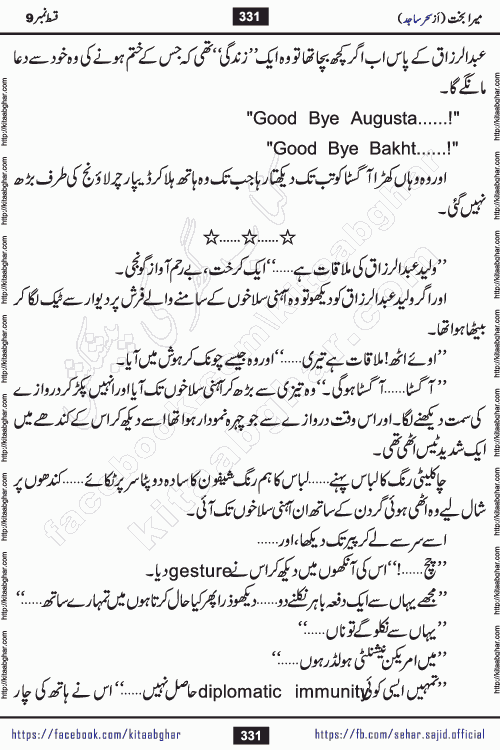 قسط نمبر 9
331
میرا بخت (از سحر ساجد)
عبدالرزاق کے پاس اب اگر کچھ بچا تھا تو وہ ایک ’’زندگی‘‘ تھی کہ جس کے ختم ہونے کی وہ خود سے دعا
مانگے گا۔
"Good Bye Augusta......!"
"Good Bye Bakht......!"
اور وہ وہاں کھڑا آگسٹا کو تب تک دیکھتا رہا جب تک وہ ہاتھ ہلا کر ڈیپارچر لاؤنج کی طرف بڑھ
نہیں گئی۔
☆......☆......☆
’’ولید عبدالرزاق کی ملاقات ہے......‘‘ ایک کرخت، بے رحم آواز گونجی۔
اور اگر ولید عبدالرزاق کو دیکھو تو وہ آہنی سلاخوں کے سامنے والے فرش پر دیوار سے ٹیک لگا کر
بیٹھا ہوا تھا۔
’’اوئے اٹھ! ملاقات ہے تیری......‘‘ اور وہ جیسے چونک کر ہوش میں آیا۔
’’آگسٹا......آگسٹا ہوگی۔‘‘ وہ تیزی سے بڑھ کر آہنی سلاخوں تک آیا اور انہیں پکڑ کر دروازے
کی سمت دیکھنے لگا۔ اور اس وقت دروازے سے جو چہرہ نمودار ہوا تھا اسے دیکھ کر اس کے کندھے میں
ایک شدید ٹیس اٹھی تھی۔
چاکلیٹی رنگ کا لباس پہنے......لباس کا ہم رنگ شیفون کا سادہ دوپٹا سر پر ٹکائے......کندھوں پر
شال لیے وہ اٹھی ہوئی گردن کے ساتھ ان آہنی سلاخوں تک آئی۔
اسے سر سے لے کر پیر تک دیکھا، اور......
’’چچ......!‘‘ اس کی آنکھوں میں دیکھ کر اس نے gesture دیا۔
’’مجھے یہاں سے ایک دفعہ باہر نکلنے دو......دیکھو ذرا پھر کیا حال کرتا ہوں میں تمہارے ساتھ......‘‘
’’یہاں سے نکلو گے تو ناں......‘‘
’’میں امریکن نیشنلٹی ہولڈر ہوں......‘‘
’’تمہیں ایسی کوئی diplomatic immunity حاصل نہیں......‘‘ اس نے ہاتھ کی چار
https://facebook.com/kitaabghar
331
https://fb.com/sehar.sajid.official
http://kitaabghar.com
kitaabghar.com